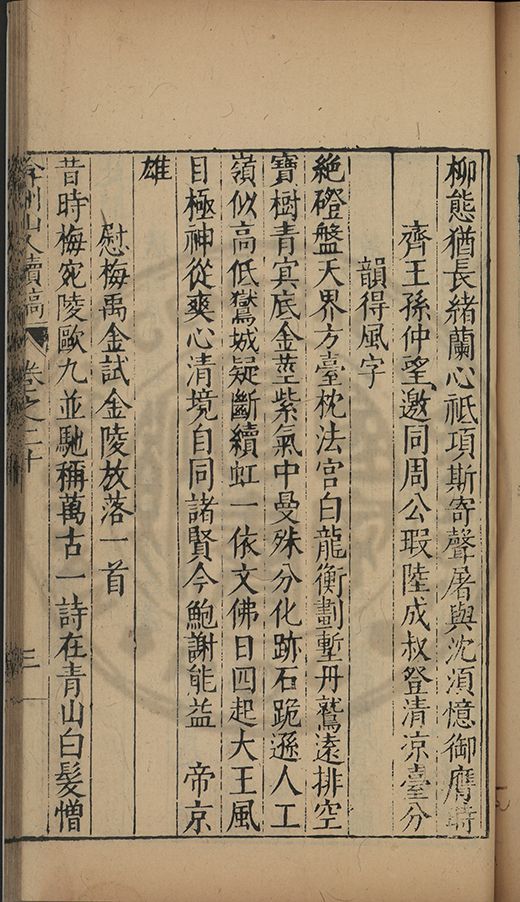 柳態猶長緒蘭心祇項斯寄聲屠與沈湏憶御膺時
齊王孫仲望邀同周公瑕陸成叔登清凉臺分
韻得風字
絶磴盤天界方臺枕法宮白龍衡劃塹丹鷲遠排空
寶樹青冥底金莖紫氣中曼殊分化跡石跪遜人工
嶺似高低鷲城疑斷續虹一依文佛日四起大王風
目極神從爽心清境自同諸賢今鮑謝能益 帝京
雄
慰梅禹金試金陵放落一首
昔時梅宛陵歐九並馳稱萬古一詩在青山白髮憎
弇州山人續稿 卷之二十 三